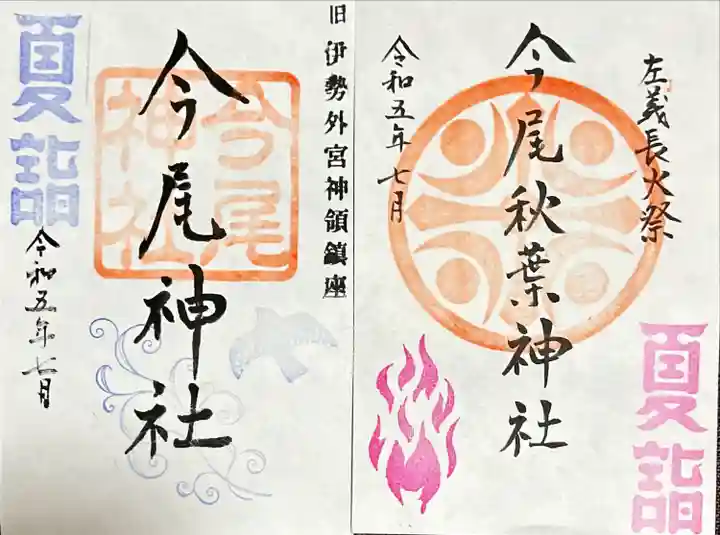 左義長火祭
今尾秋葉神社
令和五年七月
夏詣
旧伊勢外宮神領鎮座
今尾神社
今尾神社
夏詣
令和五年七月